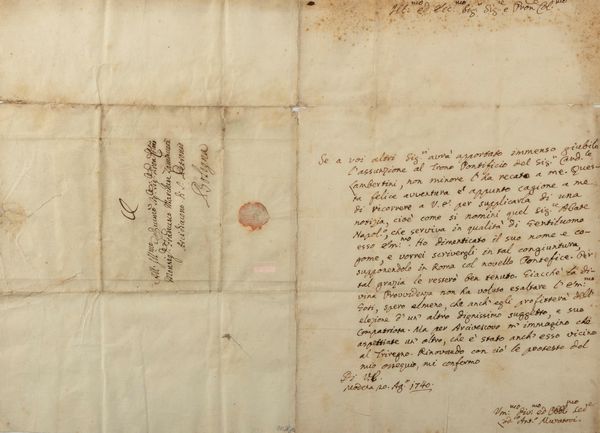 Ill.mo ed Ecc.mo Sig.r Sig.r e Pron Col.mo
Se a voi altri Sig.ri avrà apportato immenso giubilo
l'assunzione al Trono Pontificio del Sig.r Card.le
Lambertini, non minore l'ha recato a me. Ques-
ta felice avventura è appunto cagione a me
di ricorrere a V. E. per supplicarla di una
notizia, cioè come si nomini quel Sig.r Abate
Napol.o, che serviva in qualità di Gentiluomo
esso Em.mo. Ho dimenticato il suo nome e co-
gnome, e vorrei scrivergli in tal congiuntura,
supponendolo in Roma col novello Pontefice. Per
tal grazia le resterò ben tenuto. Giacchè la Di-
vina Provvidenza non ha voluto esaltare l'Em.mo
Goti, spero almeno, che anch'egli profitterà dell'
elezione d'un altro dignissimo suggetto, e suo
Compatriota. Ma per Arcivescovo m'immagino che
aspettiate un altro, che è stato anch'esso vicino
al Triregno. Rinovando con ciò le proteste del
mio ossequio, mi confermo
Di V. E.
Modena 20. Ag.o 1740.
Um.mo Div.mo ed Obbl.mo Ser.e
Lod. Ant.o Muratori
Bologna